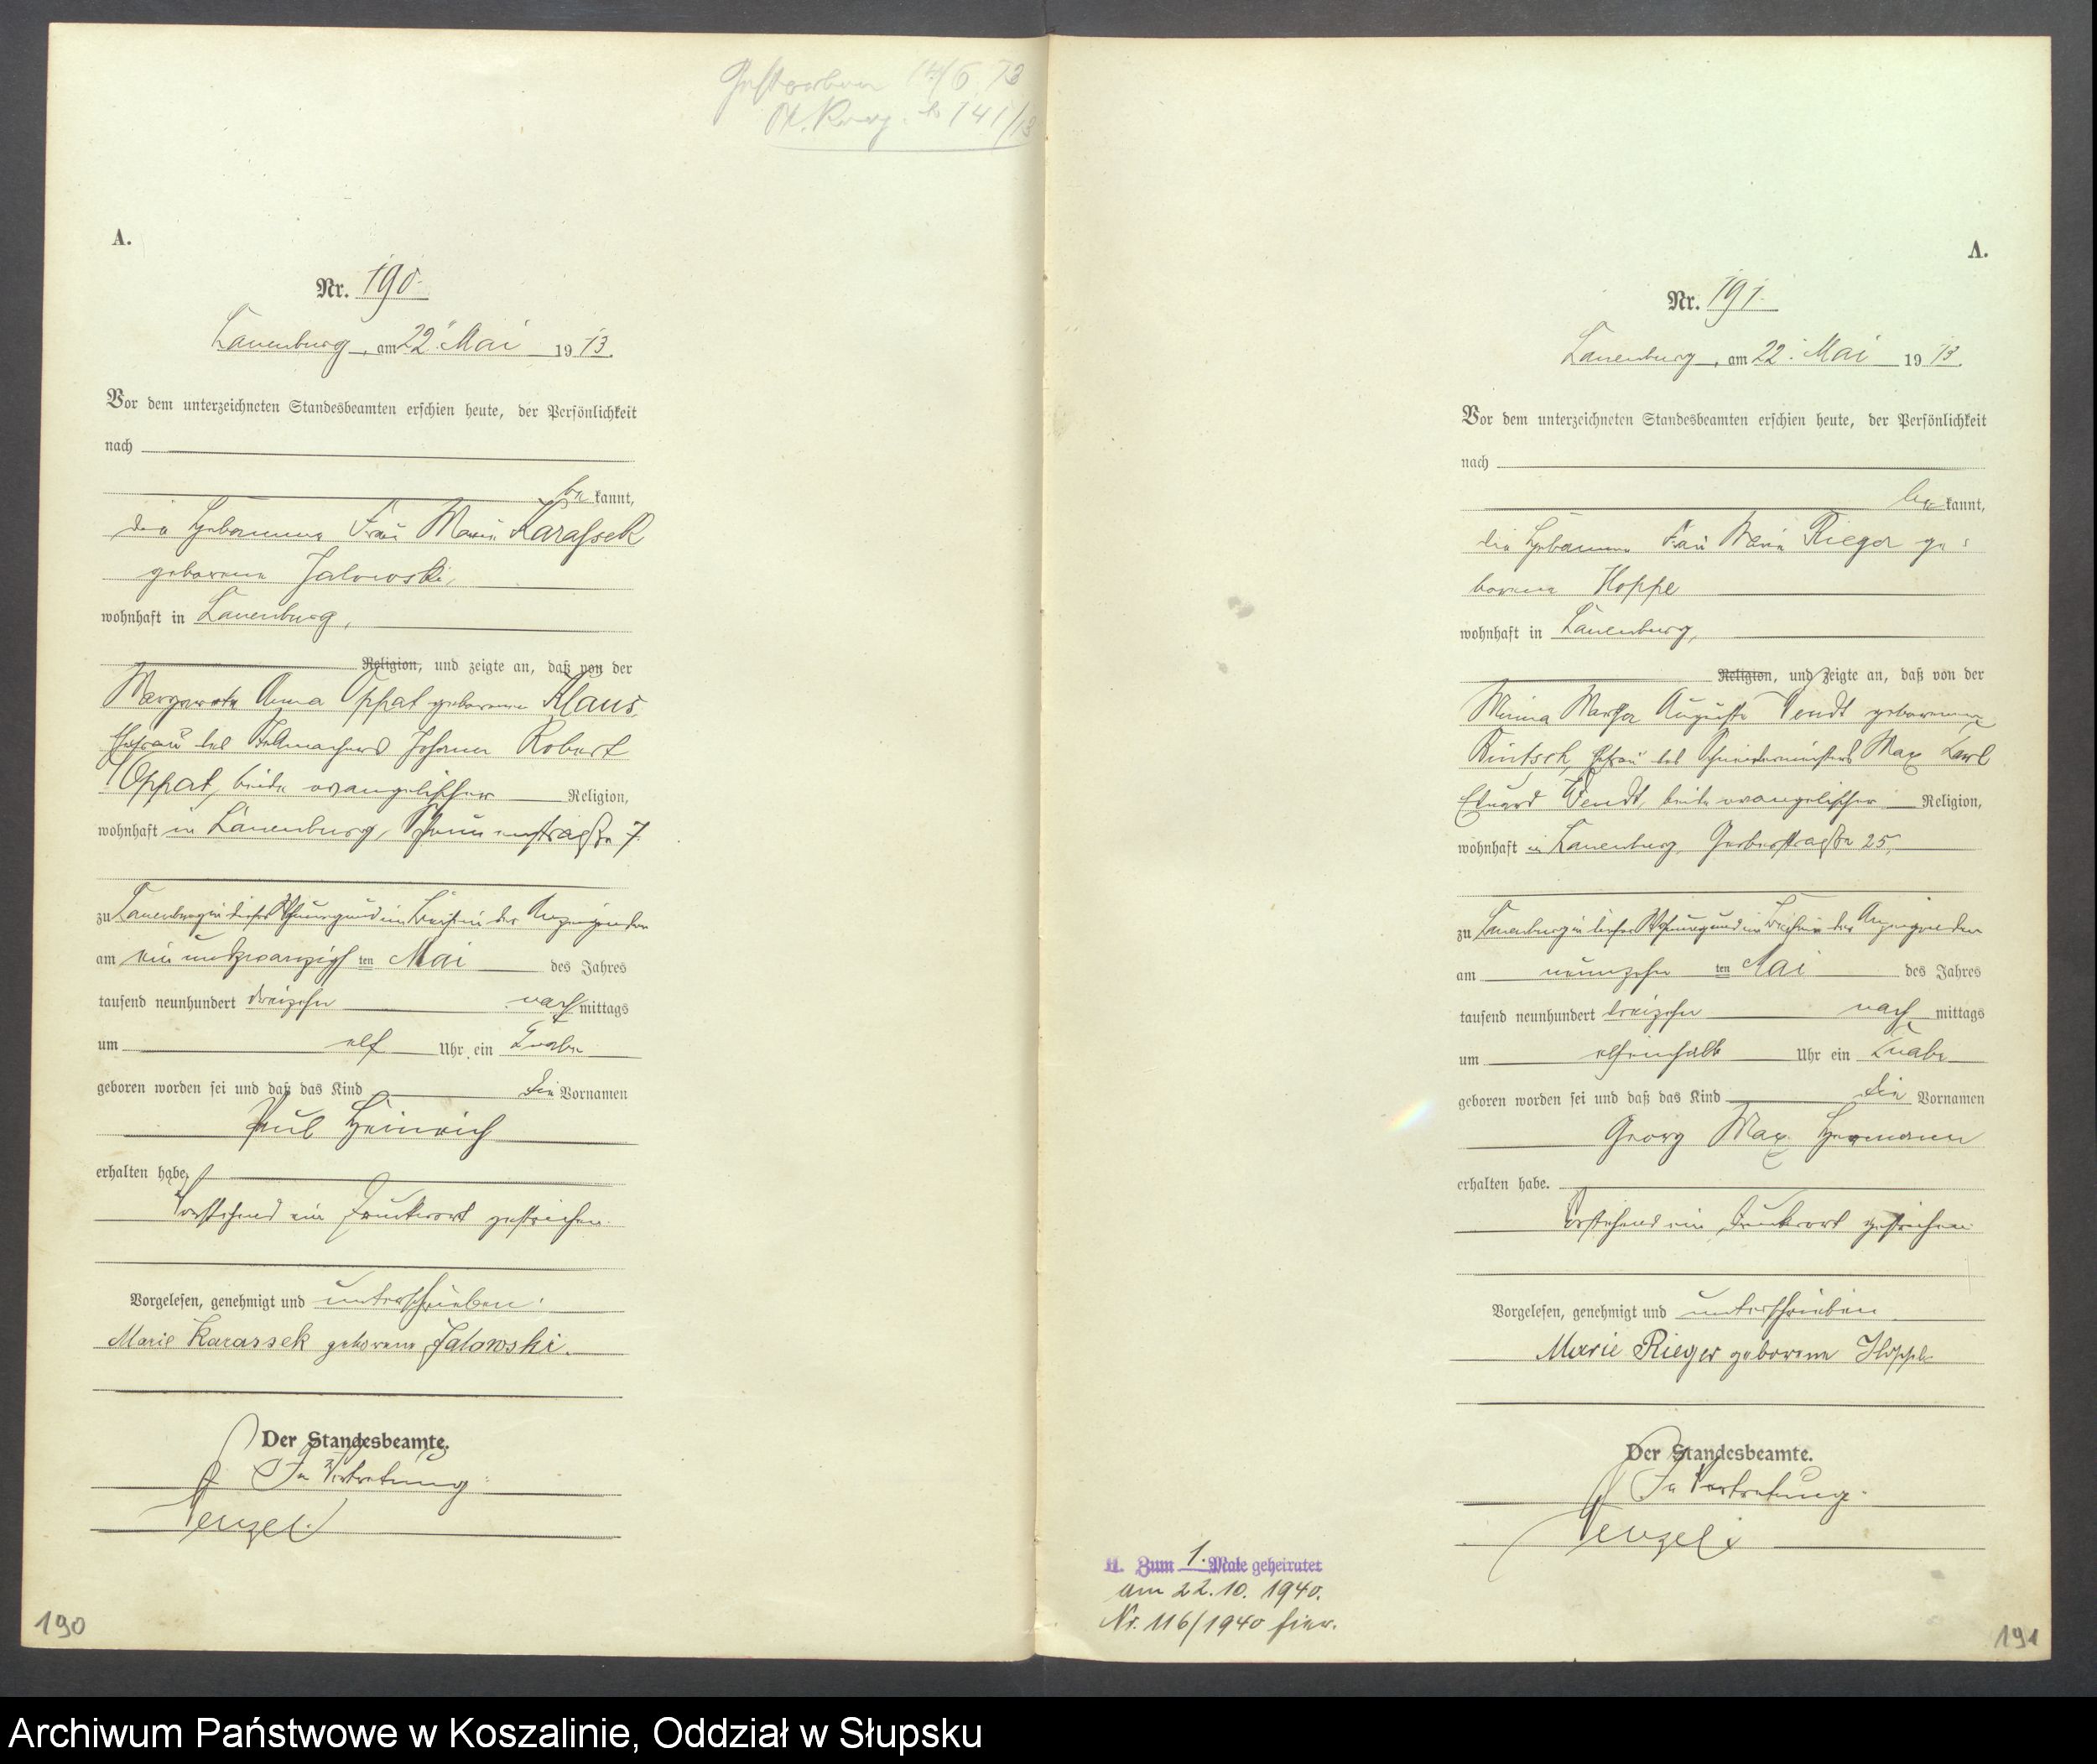 Gestorben 14/6. 13
St. Reg. No 141/13
A.
Nr. 190.
Lauenburg, am 22. Mai 1913.
Vor dem unterzeichneten Standesbeamten erschien heute, der Persönlichkeit
nach
be kannt,
die Hebamme Frau Marie Karassek
geborene Jalowski,
wohnhaft in Lauenburg,
Religion, und zeigte an, daß von der
Margarete Anna Oppat geborenen Klaus,
Ehefrau des Stellmachers Johann Robert
Oppat, beide evangelischer Religion,
wohnhaft in Lauenburg, 7.
zu Lauenburg in dieser Wohnung und im Beisein der Anzeigenden
am einundzwanzigsten Mai des Jahres
tausend neunhundert dreizehn nachmittags
um elf Uhr ein Knabe
geboren worden sei und daß das Kind die Vornamen
Paul Heinrich
erhalten habe.
Vorstehend ein Druckwort gestrichen.
Vorgelesen, genehmigt und unterschrieben.
Marie Karassek geborene Jalowski.
Der Standesbeamte.
In Vertretung:
Wenzel.
190
A.
Nr. 191.
Lauenburg, am 22. Mai 1913.
Vor dem unterzeichneten Standesbeamten erschien heute, der Persönlichkeit
nach
be kannt,
die Hebamme Frau Marie Rieger ge=
borene Hoppe
wohnhaft in Lauenburg,
Religion, und zeigte an, daß von der
Minna Martha Auguste Wendt geborenen
Rintsch, Ehefrau des Schneidermeisters Max Karl
Eduard Wendt, beide evangelischer Religion,
wohnhaft in Lauenburg, Gerberstraße 25,
zu Lauenburg in dieser Wohnung und im Beisein der Anzeigenden
am neunzehnten Mai des Jahres
tausend neunhundert dreizehn nachmittags
um elfeinhalb Uhr ein Knabe
geboren worden sei und daß das Kind die Vornamen
Georg Max Hermann
erhalten habe.
Vorstehend ein Druckwort gestrichen
Vorgelesen, genehmigt und unterschrieben
Marie Rieger geborene Hoppe
Der Standesbeamte.
In Vertretung.
Wenzel.
H. Zum 1. Male geheiratet
am 22.10. 1940.
Nr. 116/1940 hier.
191
Archiwum Państwowe w Koszalinie, Oddział w Słupsku